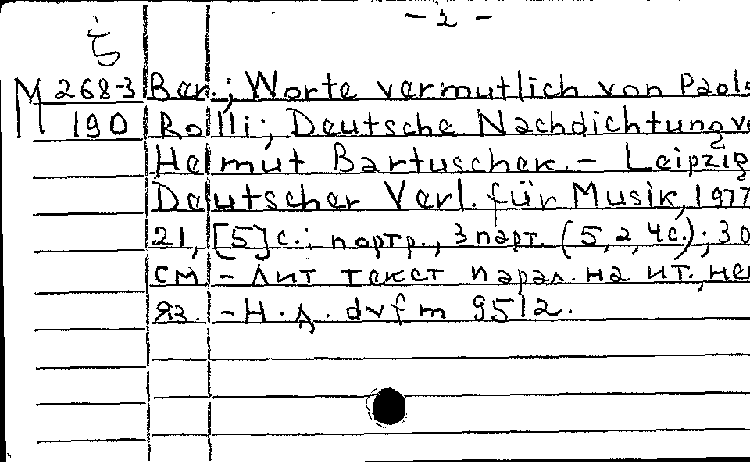 - 2 -
М 268-3 Bar.; Worte vermutlich von Paolo
190 Rolli; Deutsche Nachdichtung v
Helmut Bartuschek. - Leipzig
Deutscher Verl. für Musik, 1977
21, [5] с.: портр., 3 парт. (5, 2, 4 с.); 30
см - Лит текст парал. на ит., не
яз. - Н. д. dvfm 9512.